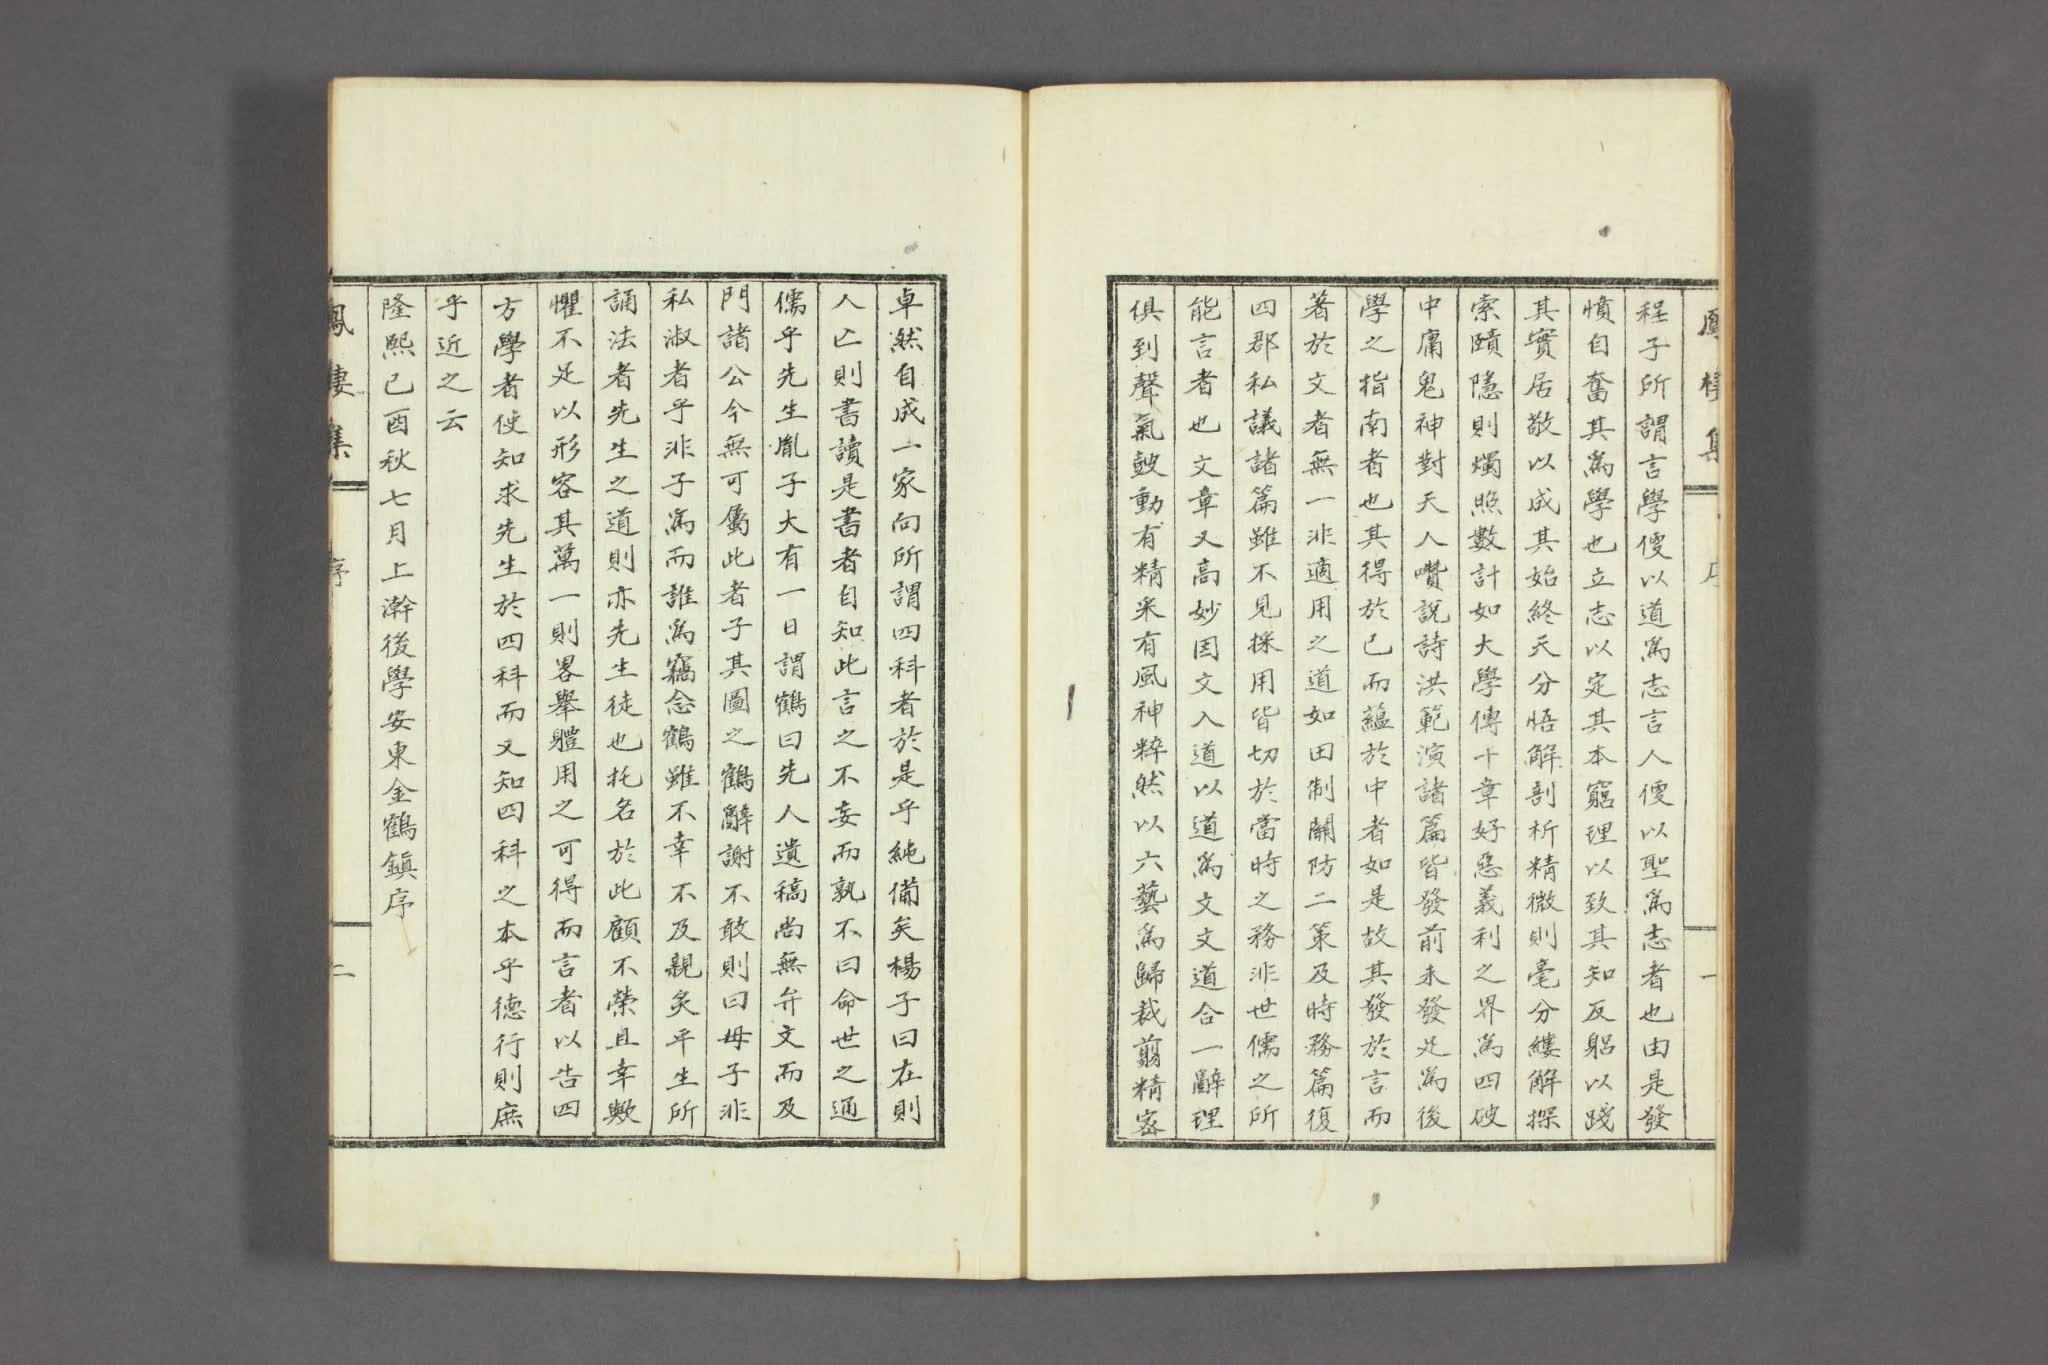 程子所謂言學便以道爲志言人便以聖爲志者也由是發
憤自奮其爲學也立志以定其本窮理以致其知反躬以踐
其實居敬以成其始終天分悟解剖析精微則毫分縷解探
索賾隱則燭照數計如大學傳十章好惡義利之界爲四破
中庸鬼神對天人囋說詩洪範演諸篇皆發前未發足爲後
學之指南者也其得於己而蘊於中者如是故其發於言而
著於文者無一非適用之道如田制關防二策及時務篇復
四郡私議諸篇雖不見採用皆切於當時之務非世儒之所
能言者也文章又高妙因文入道以道爲文文道合一辭理
俱到聲氣皷動有精采有風神粹然以六藝爲歸裁翦精密
卓然自成一家向所謂四科者於是乎純備矣楊子曰在則
人亡則書讀是書者自知此言之不妄而孰不曰命世之通
儒乎先生胤子大有一日謂鶴曰先人遺稿尚無弁文而及
門諸公今無可屬此者子其圖之鶴辭謝不敢則曰毋子非
私淑者乎非子爲而誰爲竊念鶴雖不幸不及親炙平生所
誦法者先生之道則亦先生徒也托名於此顧不榮且幸歟
懼不足以形容其萬一則畧擧體用之可得而言者以告四
方學者使知求先生於四科而又知四科之本乎德行則庶
乎近之云
隆熙己酉秋七月上澣後學安東金鶴鎭序
鳳棲集
序
二